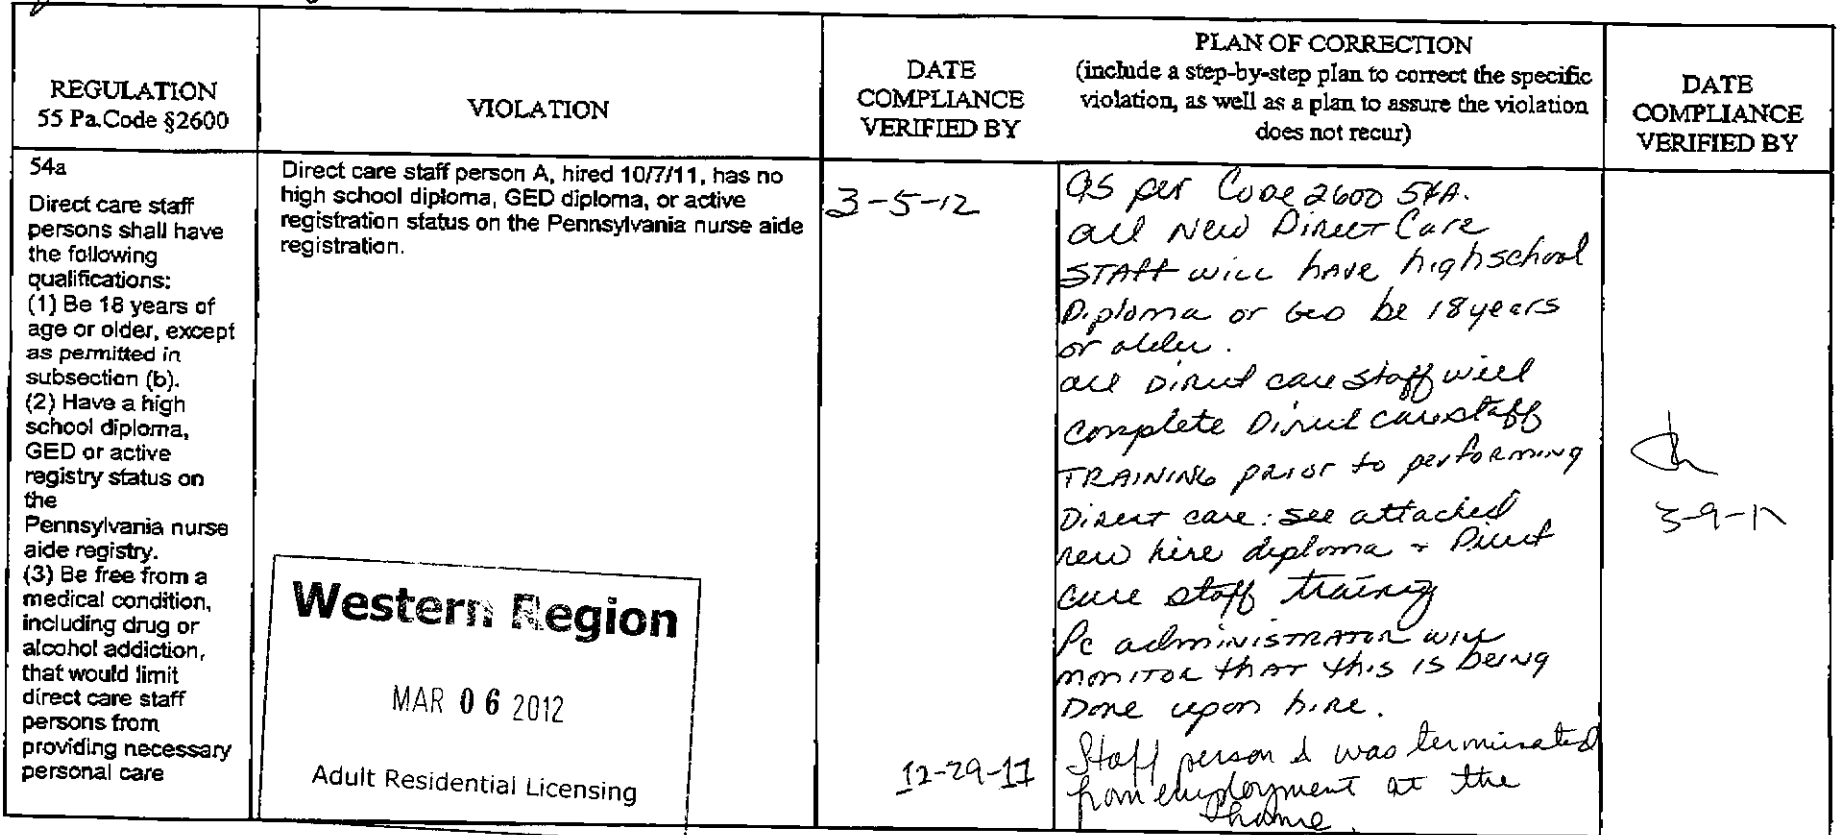 REGULATION
55 Pa.Code §2600
VIOLATION
DATE
COMPLIANCE
VERIFIED BY
PLAN OF CORRECTION
(include a step-by-step plan to correct the specific
violation, as well as a plan to assure the violation
does not recur)
DATE
COMPLIANCE
VERIFIED BY
54a
Direct care staff
persons shall have
the following
qualifications:
(1) Be 18 years of
age or older, except
as permitted in
subsection (b).
(2) Have a high
school diploma,
GED or active
registry status on
the
Pennsylvania nurse
aide registry.
(3) Be free from a
medical condition,
including drug or
alcohol addiction,
that would limit
direct care staff
persons from
providing necessary
personal care
Direct care staff person A, hired 10/7/11, has no
high school diploma, GED diploma, or active
registration status on the Pennsylvania nurse aide
registration.
Western Region
MAR 06 2012
Adult Residential Licensing
3-5-12
12-29-11
as per Code 2600 54A.
all New Direct Care
STAFF will have highschool
Diploma or GED be 18 years
or older.
all Direct care staff will
complete Direct care staff
TRAINING prior to performing
Direct care: see attached
new hire diploma + Direct
care staff training
PC administrator will
monitor that this is being
Done upon hire.
Staff person A was terminated
from employment at the
home.
3-9-12